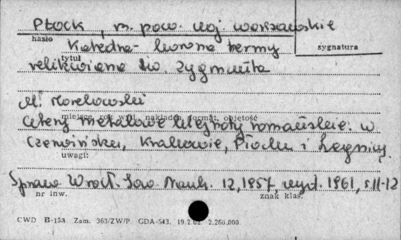 Płock, m. pow. woj. warszawskie
hasło
sygnatura
Katedra - korona hermy
tytuł
relikwiarza św. Zygmunta
M. Morelowski
miejsce, rok, wyd. nakład, format, objętość
Cztery metalowe zabytki romańskie: w
Czerwińsku, Krakowie, Płocku i Legnicy.
uwagi:
Spraw. Wrocł. Tow. Nauk. 12, 1957, wyd. 1961, s. 11-12
nr inw.
znak klas.
CWD B-153 Zam. 363/ZW/P. GDA-543. 19.2. 2.260.000